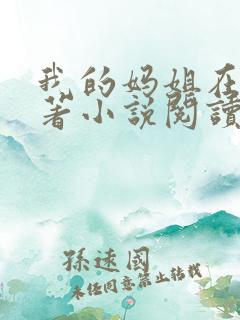 我的妈姐在
著小説閱讀
孫遠國
未任同意禁止转载